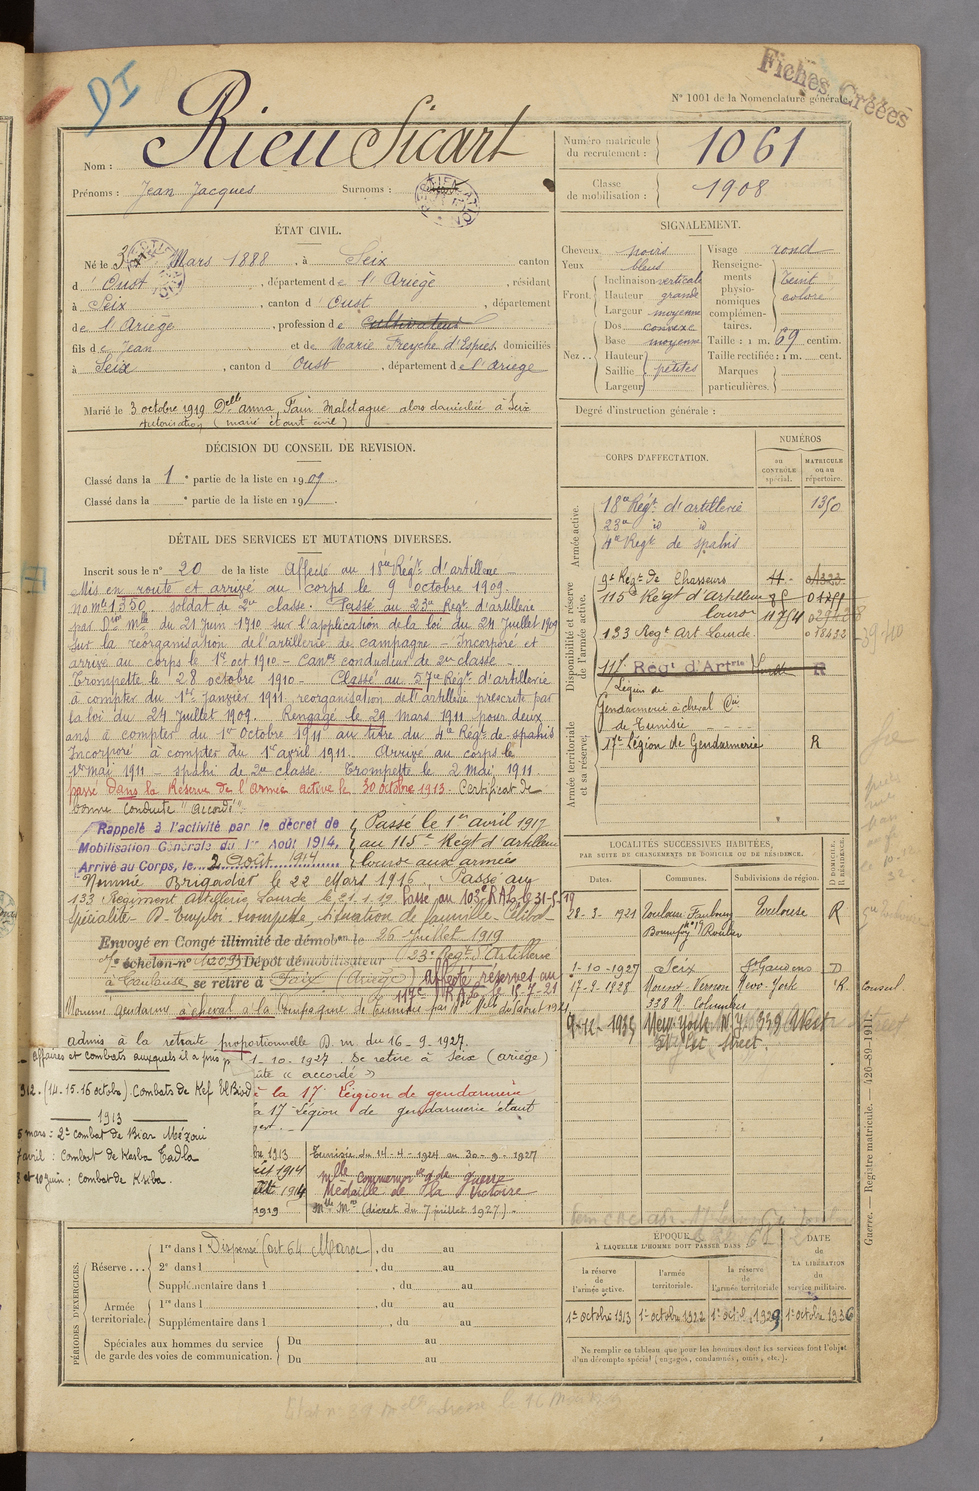 DI
Fiches Créées
N° 1001 de la Nomenclature générale.
Nom : Rieu Sicart
Prénoms : Jean Jacques Surnoms :
Numéro matricule du recrutement : 1061
Classe de mobilisation : 1908
ÉTAT CIVIL.
Né le 3 Mars 1888, à Seix canton
d'Oust, département de l'Ariège, résidant
à Seix, canton d'Oust, département
de l'Ariège, profession de cultivateur
fils de Jean et de Marie Freyche d'Espies domiciliés
à Seix, canton d Oust, département de l'Ariège
Marié le 3 octobre 1919 Delle anna, Fain Maletague alors domiciliée à Seix
autorisation (marié étant civil)
SIGNALEMENT.
Cheveux noirs
Yeux bleus
Front. Inclinaison verticale
Hauteur grande
Largeur moyenne
Nez.. Dos convexe
Base moyenne
Hauteur
Saillie petites
Largeur
Visage rond
Renseignements physionomiques complémentaires. Teint coloré
Taille : 1 m. 69 centim.
Taille rectifiée : 1 m. cent.
Marques particulières.
Degré d'instruction générale :
DÉCISION DU CONSEIL DE REVISION.
Classé dans la 1e partie de la liste en 1909.
Classé dans la e partie de la liste en 190 .
DÉTAIL DES SERVICES ET MUTATIONS DIVERSES.
Inscrit sous le n° 20 de la liste Affecté au 18me Régt. d'artillerie
Mis en route et arrivé au corps le 9 octobre 1909.
no mle 1350. soldat de 2e classe. Passé au 23me Régt d'artillerie
par Don Mlle du 21 Juin 1910 sur l'application de la loi du 24 Juillet 1909
sur la réorganisation de l'artillerie de campagne - Incorporé et
arrivé au corps le 1er oct 1910 - canr conducteur de 2e classe -
Trompette le 28 octobre 1910 - Classé au 57me Régt d'artillerie
à compter du 1er Janvier 1911 reorganisation de l'artillerie prescrite par
la loi du 24 Juillet 1909. Rengagé le 29 mars 1911 pour deux
ans à compter du 1er Octobre 1911 au titre du 4e Régt de spahis
Incorporé à compter du 1er avril 1911. Arrivé au corps le
1er mai 1911 - spahi de 2e classe. Trompette le 2 Mai 1911.
passé dans la Réserve de l'Armée active le 30 octobre 1913. Certificat de
bonne conduite "accordé"
Rappelé à l'activité par le décret de
Mobilisation Générale du 1er Août 1914,
Arrivé au Corps, le 2 Août 1914
Passé le 1er avril 1917
au 115e Régt d'artillerie
lourde aux armées
Nommé Brigadier le 22 Mars 1916, Passé au
133 Régiment Artillerie Lourde le 21.1.19. Passé au 103e R.A.L. le 31-5-19
Spécialité - B. Emploi - trompette, situation de famille - Célibat.
Envoyé en Congé illimité de démobon le 26 Juillet 1919
7e échelon n° 1209 Dépôt démobilisateur (23e Régt d'Artillerie
à Toulouse, se retire à Seix (Ariège) Affecté réserves au
117me RAL le 15-7-21
Nommé gendarme à cheval à la Compagnie de Tunisie par Don Mlle du 5 août 1924
admis à la retraite proportionnelle D. m. du 16-9-1927.
1-10-1927. Se retire à Seix (ariège)
"accordé"
à la 17e Légion de gendarmerie
a 17 Légion de gendarmerie étant
affaires et combats auxquels il a pris p
912. (14.15.16 octobre) Combats de Kef El Biod
1913
mars : 2e combat de Biar Mézoui
avril : combat de Kasba Tadla
et 10 juin : combat de Ksiba.
1913
1914
1914
1919
Tunisie du 14-4-1924 au 30-9-1927
Mlle commémorve g de guerre
Médaille de la Victoire
Mlle Mre (décret du 7 juillet 1927).
CORPS D'AFFECTATION.
NUMÉROS
au CONTRÔLE spécial.
MATRICULE ou au répertoire.
Armée active.
18me Régt d'artillerie 1350
23me id id
4me Régt de spahis
Disponibilité et réserve de l'armée active.
9e Régt de Chasseurs
115e Régt d'artillerie
lourde
133 Regt Art Lourde 018432
117e Régt d'Artrie R
Légion de
Gendarmerie à cheval
de Tunisie
Armée territoriale et sa réserve.
17e légion de Gendarmerie R
LOCALITÉS SUCCESSIVES HABITÉES,
PAR SUITE DE CHANGEMENTS DE DOMICILE OU DE RÉSIDENCE.
Dates. Communes. Subdivisions de région. D DOMICILE. R RÉSIDENCE.
28-3-1921 Toulouse Faubourg Bonnefoy Toulouse R
1-10-1927 Seix St Gaudens D
17-9-1928 Mount-Vernon New-York R Consul.
338 N. Columbus
9-11-1935 New-York N.Y. 339 West
Street.
ÉPOQUE
À LAQUELLE L'HOMME DOIT PASSER DANS
la réserve de l'armée active.
l'armée territoriale.
la réserve de l'armée territoriale
DATE de LA LIBÉRATION du service militaire.
1er octobre 1913 1er octobre 1922 1er octobre 1929 1er octobre 1936
Ne remplir ce tableau que pour les hommes dont les services font l'objet
d'un décompte spécial (engagés, condamnés, omis, etc.).
PÉRIODES D'EXERCICES.
Réserve... 1re dans l Dispensé (art 64 Maroc), du au
2e dans l , du au
Supplémentaire dans l , du au
Armée territoriale. 1re dans l , du au
Supplémentaire dans l , du au
Spéciales aux hommes du service
de garde des voies de communication.
Du au
Du au
Guerre. — Registre matricule. — 426-89-1911.